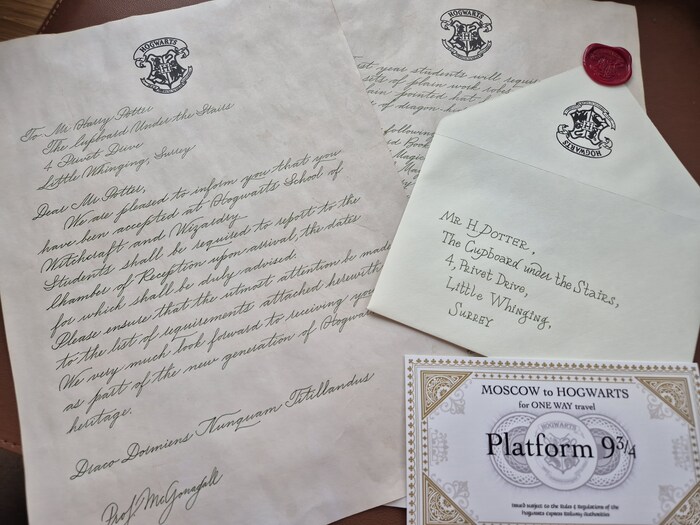 HOGWARTS
To Mr Harry Potter
The Cupboard Under the Stairs
4 Privet Drive
Little Whinging, Surrey
Dear Mr Potter,
We are pleased to inform you that you
have been accepted at Hogwarts School of
Witchcraft and Wizardry.
Students shall be required to report to the
Chamber of Reception upon arrival, the dates
for which shall be duly advised.
Please ensure that the utmost attention be made
to the list of requirements attached herewith.
We very much look forward to receiving you
as part of the new generation of Hogwar
heritage.
Draco Dormiens Nunquam Titillandus
Prof. McGonagall
HOGWARTS
st year students will requi
sets of plain work robes
lain pointed hat
of dragon h
following
d Book
Magic
HOGWARTS
Mr H. Potter,
The Cupboard under the Stairs,
4, Privet Drive,
Little Whinging,
Surrey
MOSCOW to HOGWARTS
for ONE WAY travel
HOGWARTS
Platform 9 3/4
Issued subject to the Rules & Regulations of the
Hogwarts Express Railway Authorities